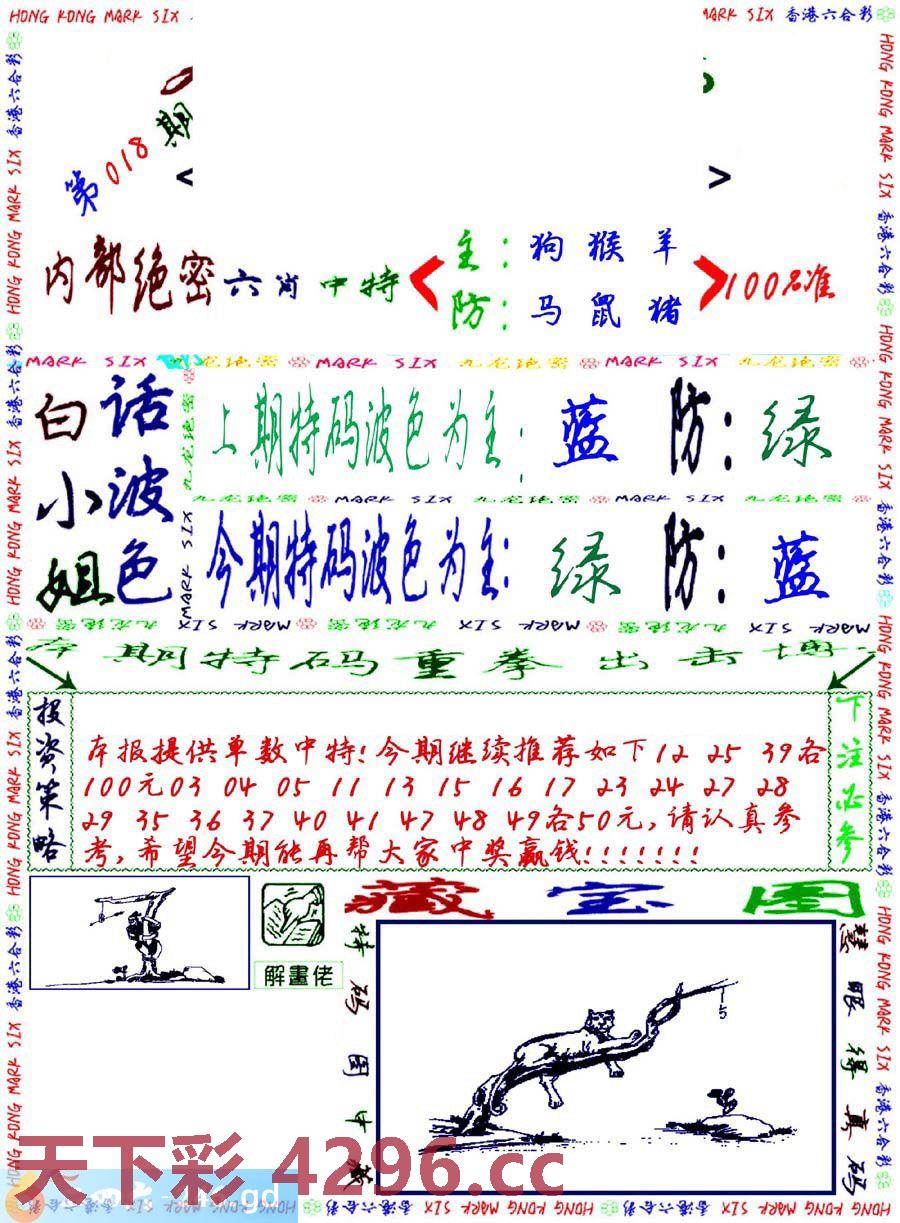 HONG KONG MARK SIX
MARK SIX 香港六合彩
第018期
< >
内部绝密六肖中特
主：狗 猴 羊
防：马 鼠 猪
100%准
MARK SIX 九龙绝密 MARK SIX 九龙绝密 MARK SIX 九龙绝密
白话
小波
姐色
上期特码波色为主：蓝 防：绿
九龙绝密 MARK SIX 九龙绝密 MARK SIX 九龙绝密
今期特码波色为主：绿 防：蓝
九龙绝密 MARK SIX 九龙绝密 MARK SIX 九龙绝密 MARK SIX
期特码重拳出击
投资策略
本报提供单数中特!今期继续推荐如下12 25 39各
100元03 04 05 11 13 15 16 17 23 24 27 28
29 35 36 37 40 41 47 48 49各50元,请认真参
考,希望今期能再帮大家中奖赢钱!!!!!!!
下注必参
解畫佬
藏宝图
特码图中藏
5
慧眼得真码
天下彩 4296.cc
gd
HONG KONG MARK SIX 香港六合彩